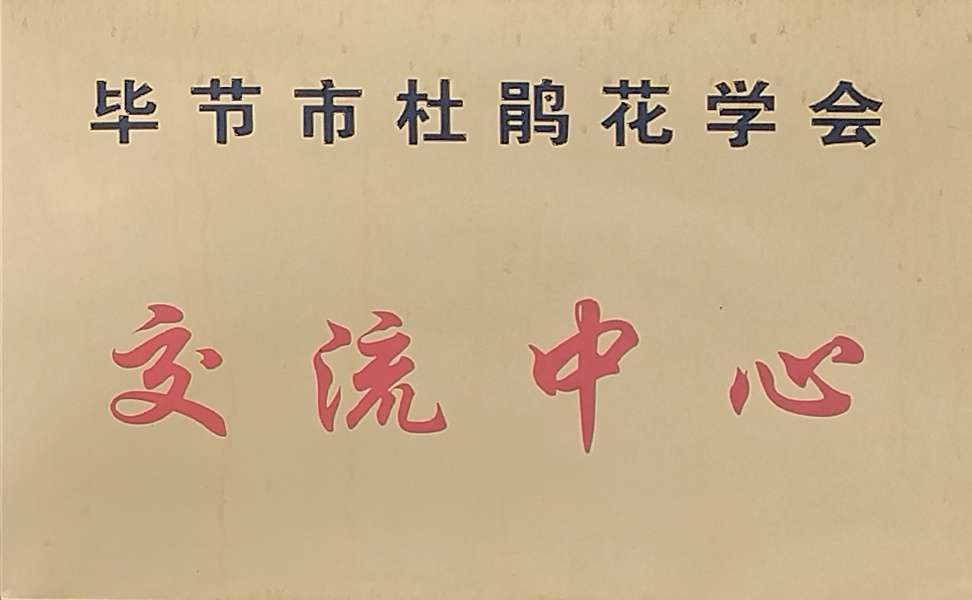 毕节市杜鹃花学会
交流中心